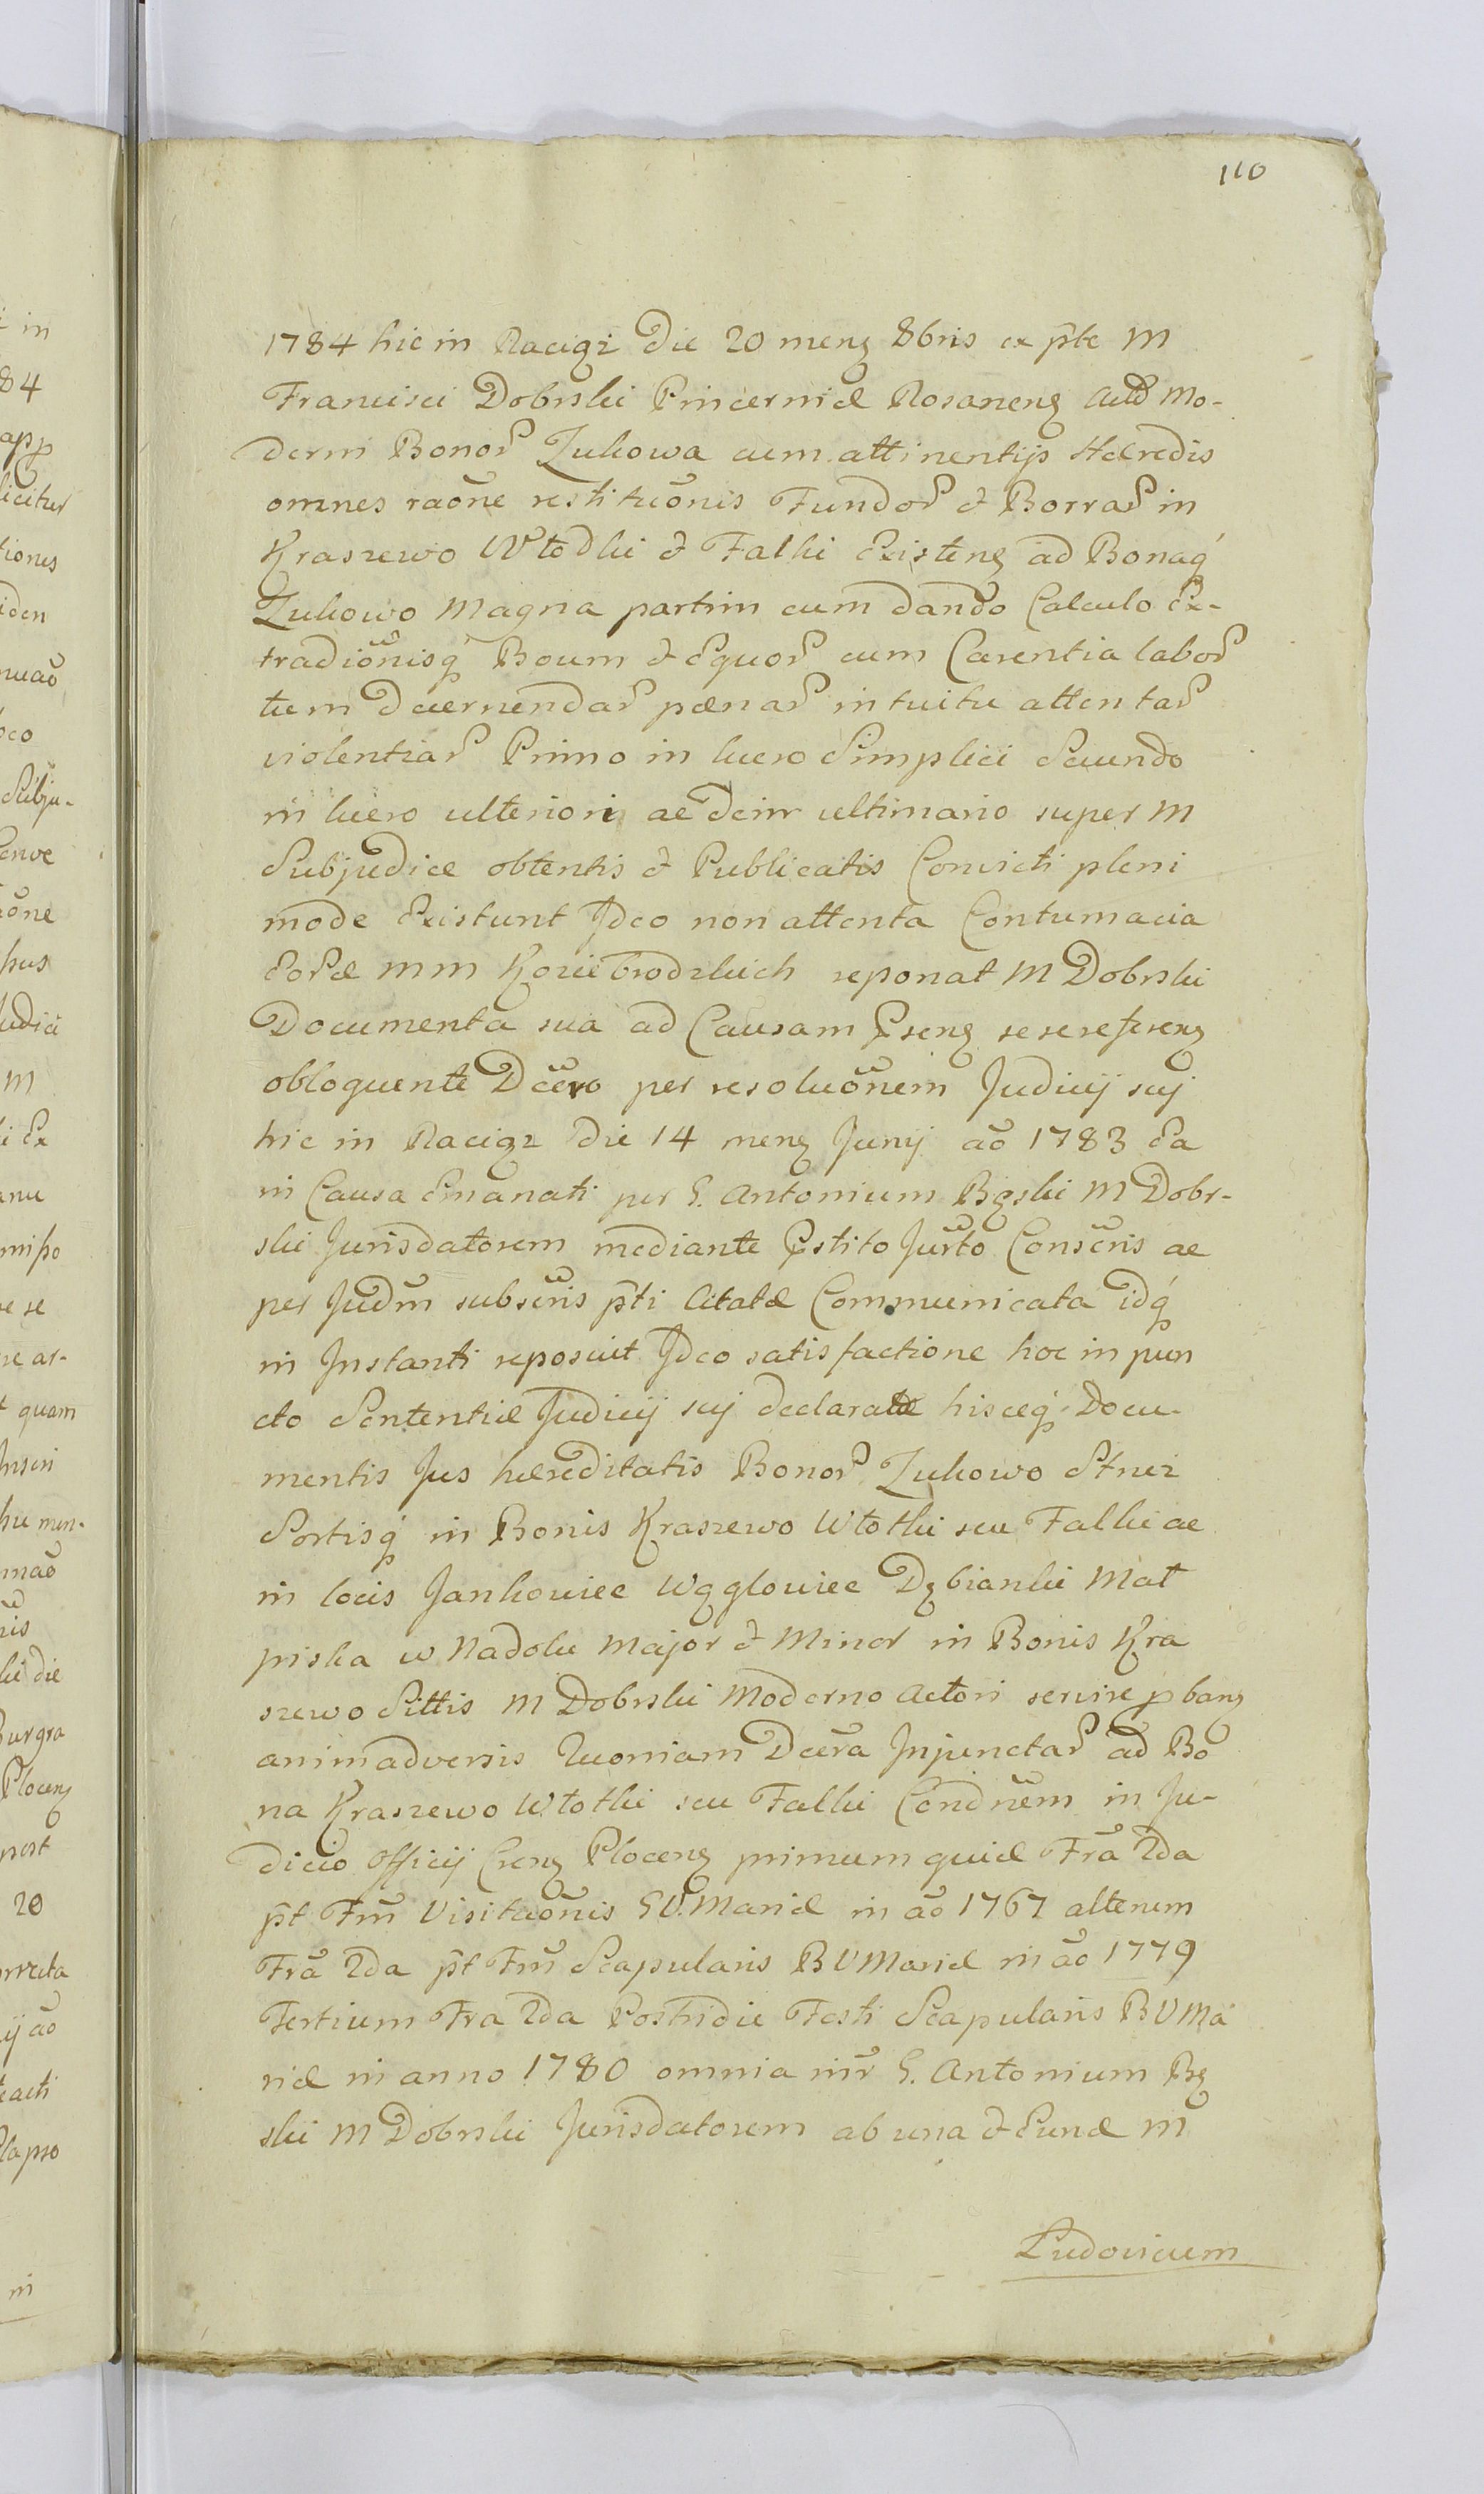 110
1784 hic in Raciąz Die 20 mens 8bris ex pte M
Francisci Dobrski Pincernæ Rosanens Act Mo-
derni Bonor Zukowa cum attinentijs Hæredis
omnes raõne restituõnis Fundor & Borrar in
Kraszewo Wtodki & Falki Existens ad Bonaq
Zukowo Magna partim cum dando Calculo Ex-
tradiõnisq Boum & Equor cum Carentia labor
tum Decernendar pænar intuitu attentar
violentiar Primo in lucro Simplici Secundo
in lucro ulteriori ac Dein ultimario super M
Subjudice obtentis & Publicatis Convicti pleni
mode Existunt Ideo non attenta Contumacia
Eord MM Koziebrodzkich reponat M Dobrski
Documenta sua ad Causam Psens sese referens
obloquente Dcero per resoluõnem Judicij sui
hic in Raciąz Die 14 mens Junij aõ 1783 Ea
in Causa Emanati per G. Antonium Bęski M Dobr-
ski Jurisdatorem mediante Pstito Jurto Conscris ac
per Judm subscris pti Citatæ Communicata idq
in Instanti reposuit Ideo satisfactione hoc in pun
cto Sententiæ Judicij sui declaratæ hisceq Docu-
mentis Jus hæreditatis Bonor Zukowo Strzez
Sortisq in Bonis Kraszewo Wtotki seu Falki ac
in locis Jankowiec Wąglowiec Dębianki Mat
piska w Nadolu Major & Minor in Bonis Kra
szewo Sittis M Dobrski Moderno Actori servire pbans
animadversis Quoniam Dcera Injunctar ad Bo
na Kraszewo Wtotki seu Falki Condnem in Ju-
dicio Officij Crens Plocens primum quid Fra 2da
pt Fm Visituõnis G V. Mariæ in aõ 1767 alterum
Fra 2da pt Fm Scapularis B V Mariæ in aõ 1779
Tertium Fra 2da Postridie Festi Scapularis B V Ma
riæ in anno 1780 omnia intr G. Antonium Bę
ski M Dobrski Jurisdatorem ab una & Eund M
Ludovicum